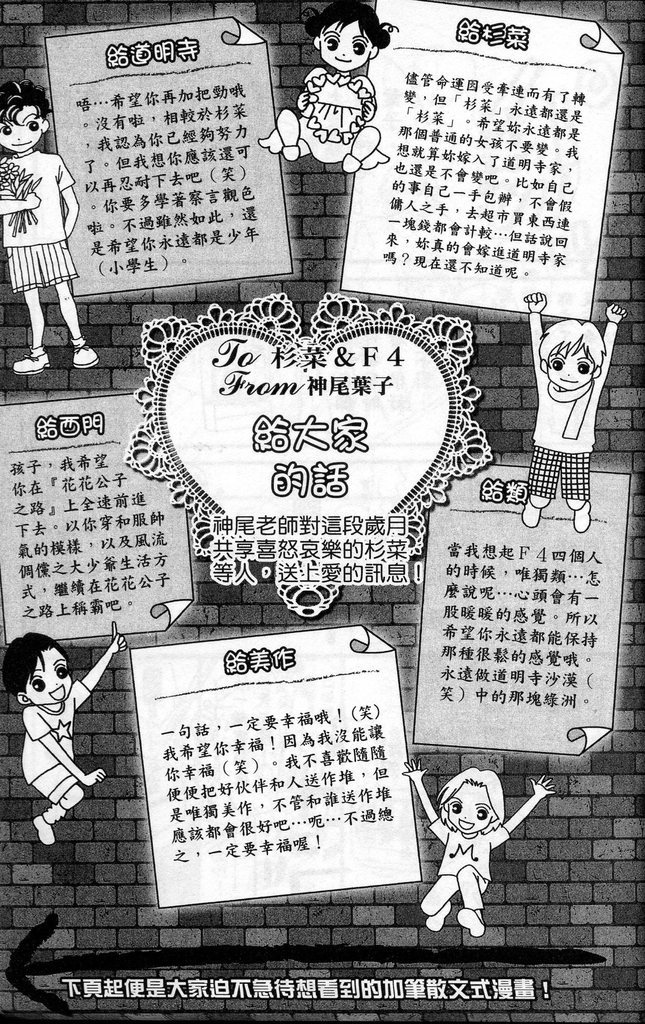 給道明寺
唔…希望你再加把勁哦
。沒有啦，相較於杉菜
，我認為你已經夠努力
了。但我想你應該還可
以再忍耐下去吧（笑）
。你要多學著察言觀色
啦。不過雖然如此，還
是希望你永遠都是少年
（小學生）。
給杉菜
儘管命運因受牽連而有了轉
變，但「杉菜」永遠都還是
「杉菜」。希望妳永遠都是
那個普通的女孩不要變。我
想就算妳嫁入了道明寺家，
也還是不會變吧。比如自己
的事自己一手包辦，不會假
傭人之手，去超市買東西連
一塊錢都會計較…但話說回
來，妳真的會嫁進道明寺家
嗎？現在還不知道呢。
To 杉菜＆F4
From 神尾葉子
給大家
的話
神尾老師對這段歲月
共享喜怒哀樂的杉菜
等人，送上愛的訊息！
給西門
孩子，我希望
你在『花花公子
之路』上全速前進
下去。以你穿和服帥
氣的模樣，以及風流
倜儻之大少爺生活方
式，繼續在花花公子
之路上稱霸吧。
給類
當我想起F4四個人
的時候，唯獨類…怎
麼說呢…心頭會有一
股暖暖的感覺。所以
希望你永遠都能保持
那種很鬆的感覺哦。
永遠做道明寺沙漠（
笑）中的那塊綠洲。
給美作
一句話，一定要幸福哦！（笑）
我希望你幸福！因為我沒能讓
你幸福（笑）。我不喜歡隨隨
便便把好伙伴和人送作堆，但
是唯獨美作，不管和誰送作堆
應該都會很好吧…呃…不過總
之，一定要幸福喔！
下頁起便是大家迫不急待想看到的加筆散文式漫畫！